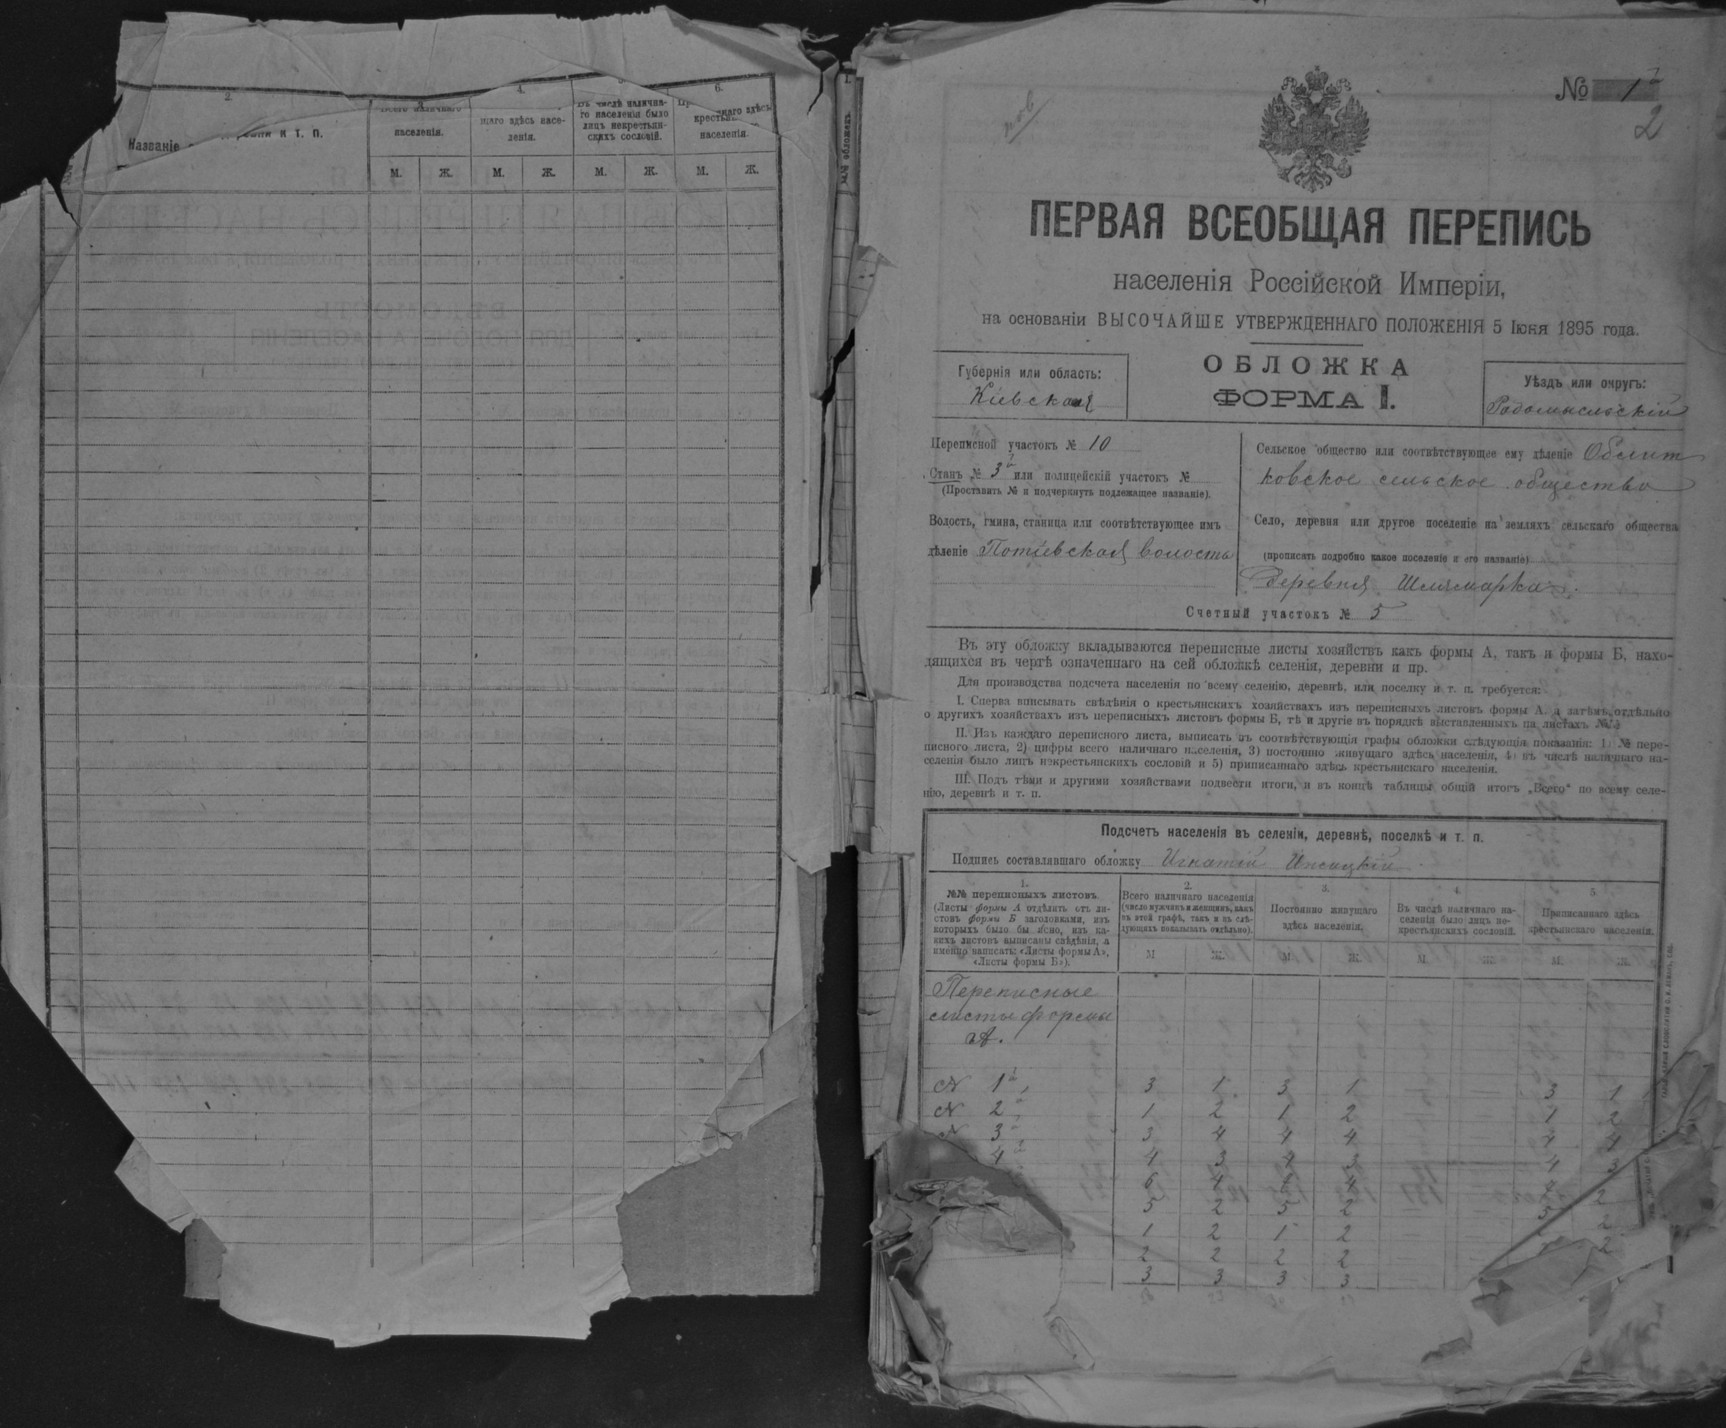 2.
4.
6.
Названіе
и т. п.
населенія.
щаго здѣсь насе-
ленія.
въ числѣ налична-
го населенія было
лицъ некрестьян-
скихъ сословій.
крестьян
наго здѣсь
населенія.
М. Ж. М. Ж. М. Ж. М. Ж.
№ 1
2
ПЕРВАЯ ВСЕОБЩАЯ ПЕРЕПИСЬ
населенія Россійской Имперіи,
на основаніи ВЫСОЧАЙШЕ УТВЕРЖДЕННАГО ПОЛОЖЕНІЯ 5 Іюня 1895 года.
ОБЛОЖКА
ФОРМА I.
Губернія или область:
Кіевская
Уѣздъ или округъ:
Радомысльскій
Переписной участокъ № 10
Станъ № 3й или полицейскій участокъ №
(Проставить № и подчеркнуть подлежащее названіе).
Волость, гмина, станица или соотвѣтствующее имъ
дѣленіе Потіевская волость
Сельское общество или соотвѣтствующее ему дѣленіе Облит
ковское сельское общество
Село, деревня или другое поселеніе на земляхъ сельскаго общества
(прописать подробно какое поселеніе и его названіе)
Деревня Шлямарка
Счетный участокъ № 5
Въ эту обложку вкладываются переписные листы хозяйствъ какъ формы А, такъ и формы Б, нахо-
дящихся въ чертѣ означеннаго на сей обложкѣ селенія, деревни и пр.
Для производства подсчета населенія по всему селенію, деревнѣ, или поселку и т. п. требуется:
I. Сперва вписывать свѣдѣнія о крестьянскихъ хозяйствахъ изъ переписныхъ листовъ формы А, а затѣмъ отдѣльно
о другихъ хозяйствахъ изъ переписныхъ листовъ формы Б, тѣ и другіе въ порядкѣ выставленныхъ на листахъ №№
II. Изъ каждаго переписного листа, выписать въ соотвѣтствующія графы обложки слѣдующія показанія: 1) № пере-
писного листа, 2) цифры всего наличнаго населенія, 3) постоянно живущаго здѣсь населенія, 4) въ числѣ наличнаго на-
селенія было лицъ некрестьянскихъ сословій и 5) приписаннаго здѣсь крестьянскаго населенія.
III. Подъ тѣми и другими хозяйствами подвести итоги, и въ концѣ таблицы общій итогъ „Всего“ по всему селе-
нію, деревнѣ и т. п.
Подсчетъ населенія въ селеніи, деревнѣ, поселкѣ и т. п.
Подпись составлявшаго обложку Игнатій
1.
№№ переписныхъ листовъ.
(Листы формы А отдѣлить отъ ли-
стовъ формы Б заголовками, изъ
которыхъ было бы ясно, изъ ка-
кихъ листовъ выписаны свѣдѣнія, а
именно написать: «Листы формы А»,
«Листы формы Б»).
2.
Всего наличнаго населенія
(число мужчинъ и женщинъ, какъ
въ этой графѣ, такъ и въ слѣ-
дующихъ показывать отдѣльно).
3.
Постоянно живущаго
здѣсь населенія.
4.
Въ числѣ наличнаго на-
селенія было лицъ не-
крестьянскихъ сословій.
5.
Приписаннаго здѣсь
крестьянскаго населенія.
М. Ж. М. Ж. М. Ж. М. Ж.
Переписные
листы формы
А.
№ 1й 3 1 3 1 — — 3 1
№ 2й 1 2 1 2 — — 1 2
№ 3й 3 4 4 4 — — 4 4
4 4 3 4 3 — — 4 3
6 4 4 4
5 2 5 2 — — 5 2
1 2 1 2
2 2 2 2
3 3 3 3